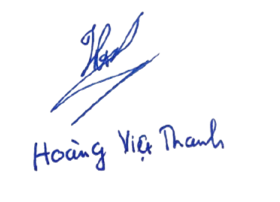 Hoàng Việt Thanh